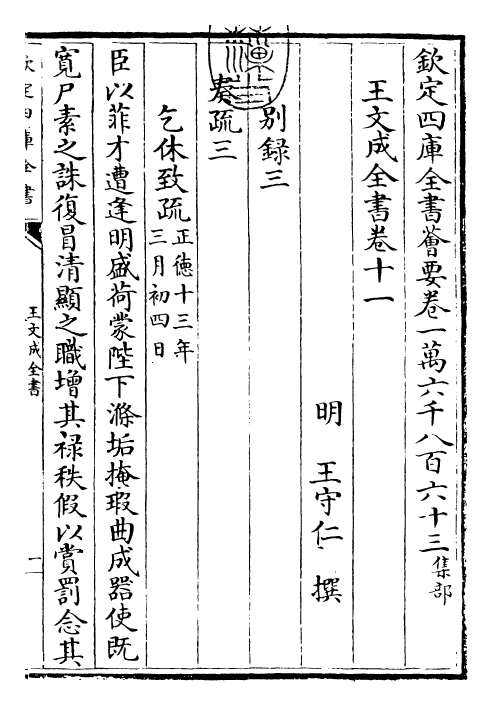 欽定四庫全書薈要卷一萬六千八百六十三集部
王文成全書卷十一
明 王守仁 撰
別録三
奏疏三
乞休致疏正德十三年三月初四日
臣以菲才遭逢明盛荷蒙陛下滌垢掩瑕曲成器使既
寛尸素之誅復冒清顯之職增其禄秩假以賞罰念其
欽定四庫全書
王文成全書
一